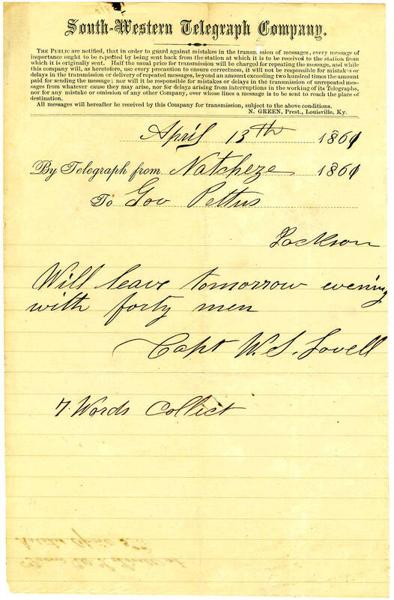 South-Western Telegraph Company.
THE PUBLIC are notified, that in order to guard against mistakes in the transmission of messages, every message of
importance ought to be repeated by being sent back from the station at which it is to be received to the station from
which it is originally sent. Half the usual price for transmission will be charged for repeating the message, and while
this company will, as heretofore, use every precaution to ensure correctness, it will not be responsible for mistakes or
delays in the transmission or delivery of repeated messages, beyond an amount exceeding two hundred times the amount
paid for sending the message; nor will it be responsible for mistakes or delays in the transmission of unrepeated mes-
sages from whatever cause they may arise, nor for delays arising from interruptions in the working of its Telegraphs,
nor for any mistake or omission of any other Company, over whose lines a message is to be sent to reach the place of
destination.
All messages will hereafter be received by this Company for transmission, subject to the above conditions.
N. GREEN, Prest., Louisville, Ky.
April 13th 1861
By Telegraph from Natcheze 1861
To Gov Pettus
Jackson
Will leave tomorrow evening
with forty men
Capt W. S. Lovell
7 Words Collect